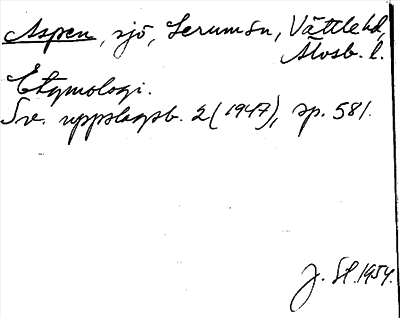 Aspen, sjö, Lerum sn, Vättle hd,
Älvsb. l.
Etymologi.
Sv. uppslagsb. 2 (1947), sp. 581.
J. Sl. 1954.